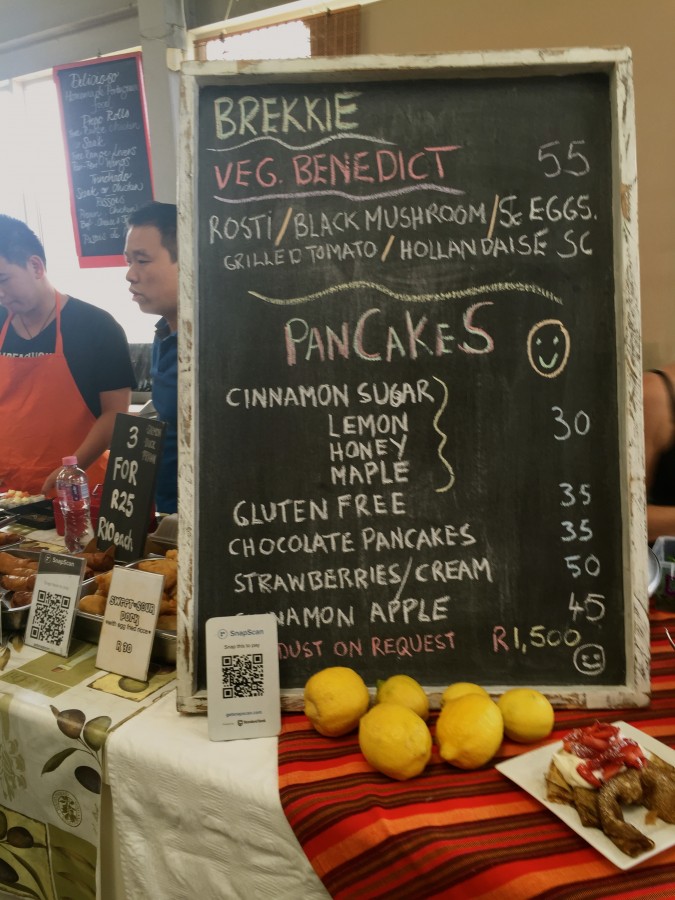 BREKKIE
VEG. BENEDICT 55
ROSTI/BLACK MUSHROOM/SC EGGS.
GRILLED TOMATO/HOLLANDAISE SC
PANCAKES
CINNAMON SUGAR
LEMON 30
HONEY
MAPLE
GLUTEN FREE 35
CHOCOLATE PANCAKES 35
STRAWBERRIES/CREAM 50
NAMON APPLE 45
DUST ON REQUEST R1,500
Delizioso
Homemade
food
Prego Rolls
Steak
Trinchado
Steak or Chicken
Rissois
3
FOR
R25
R10 each
SnapScan
SnapScan
Snap this to pay
SWEET+SOUR
PORK
R 30